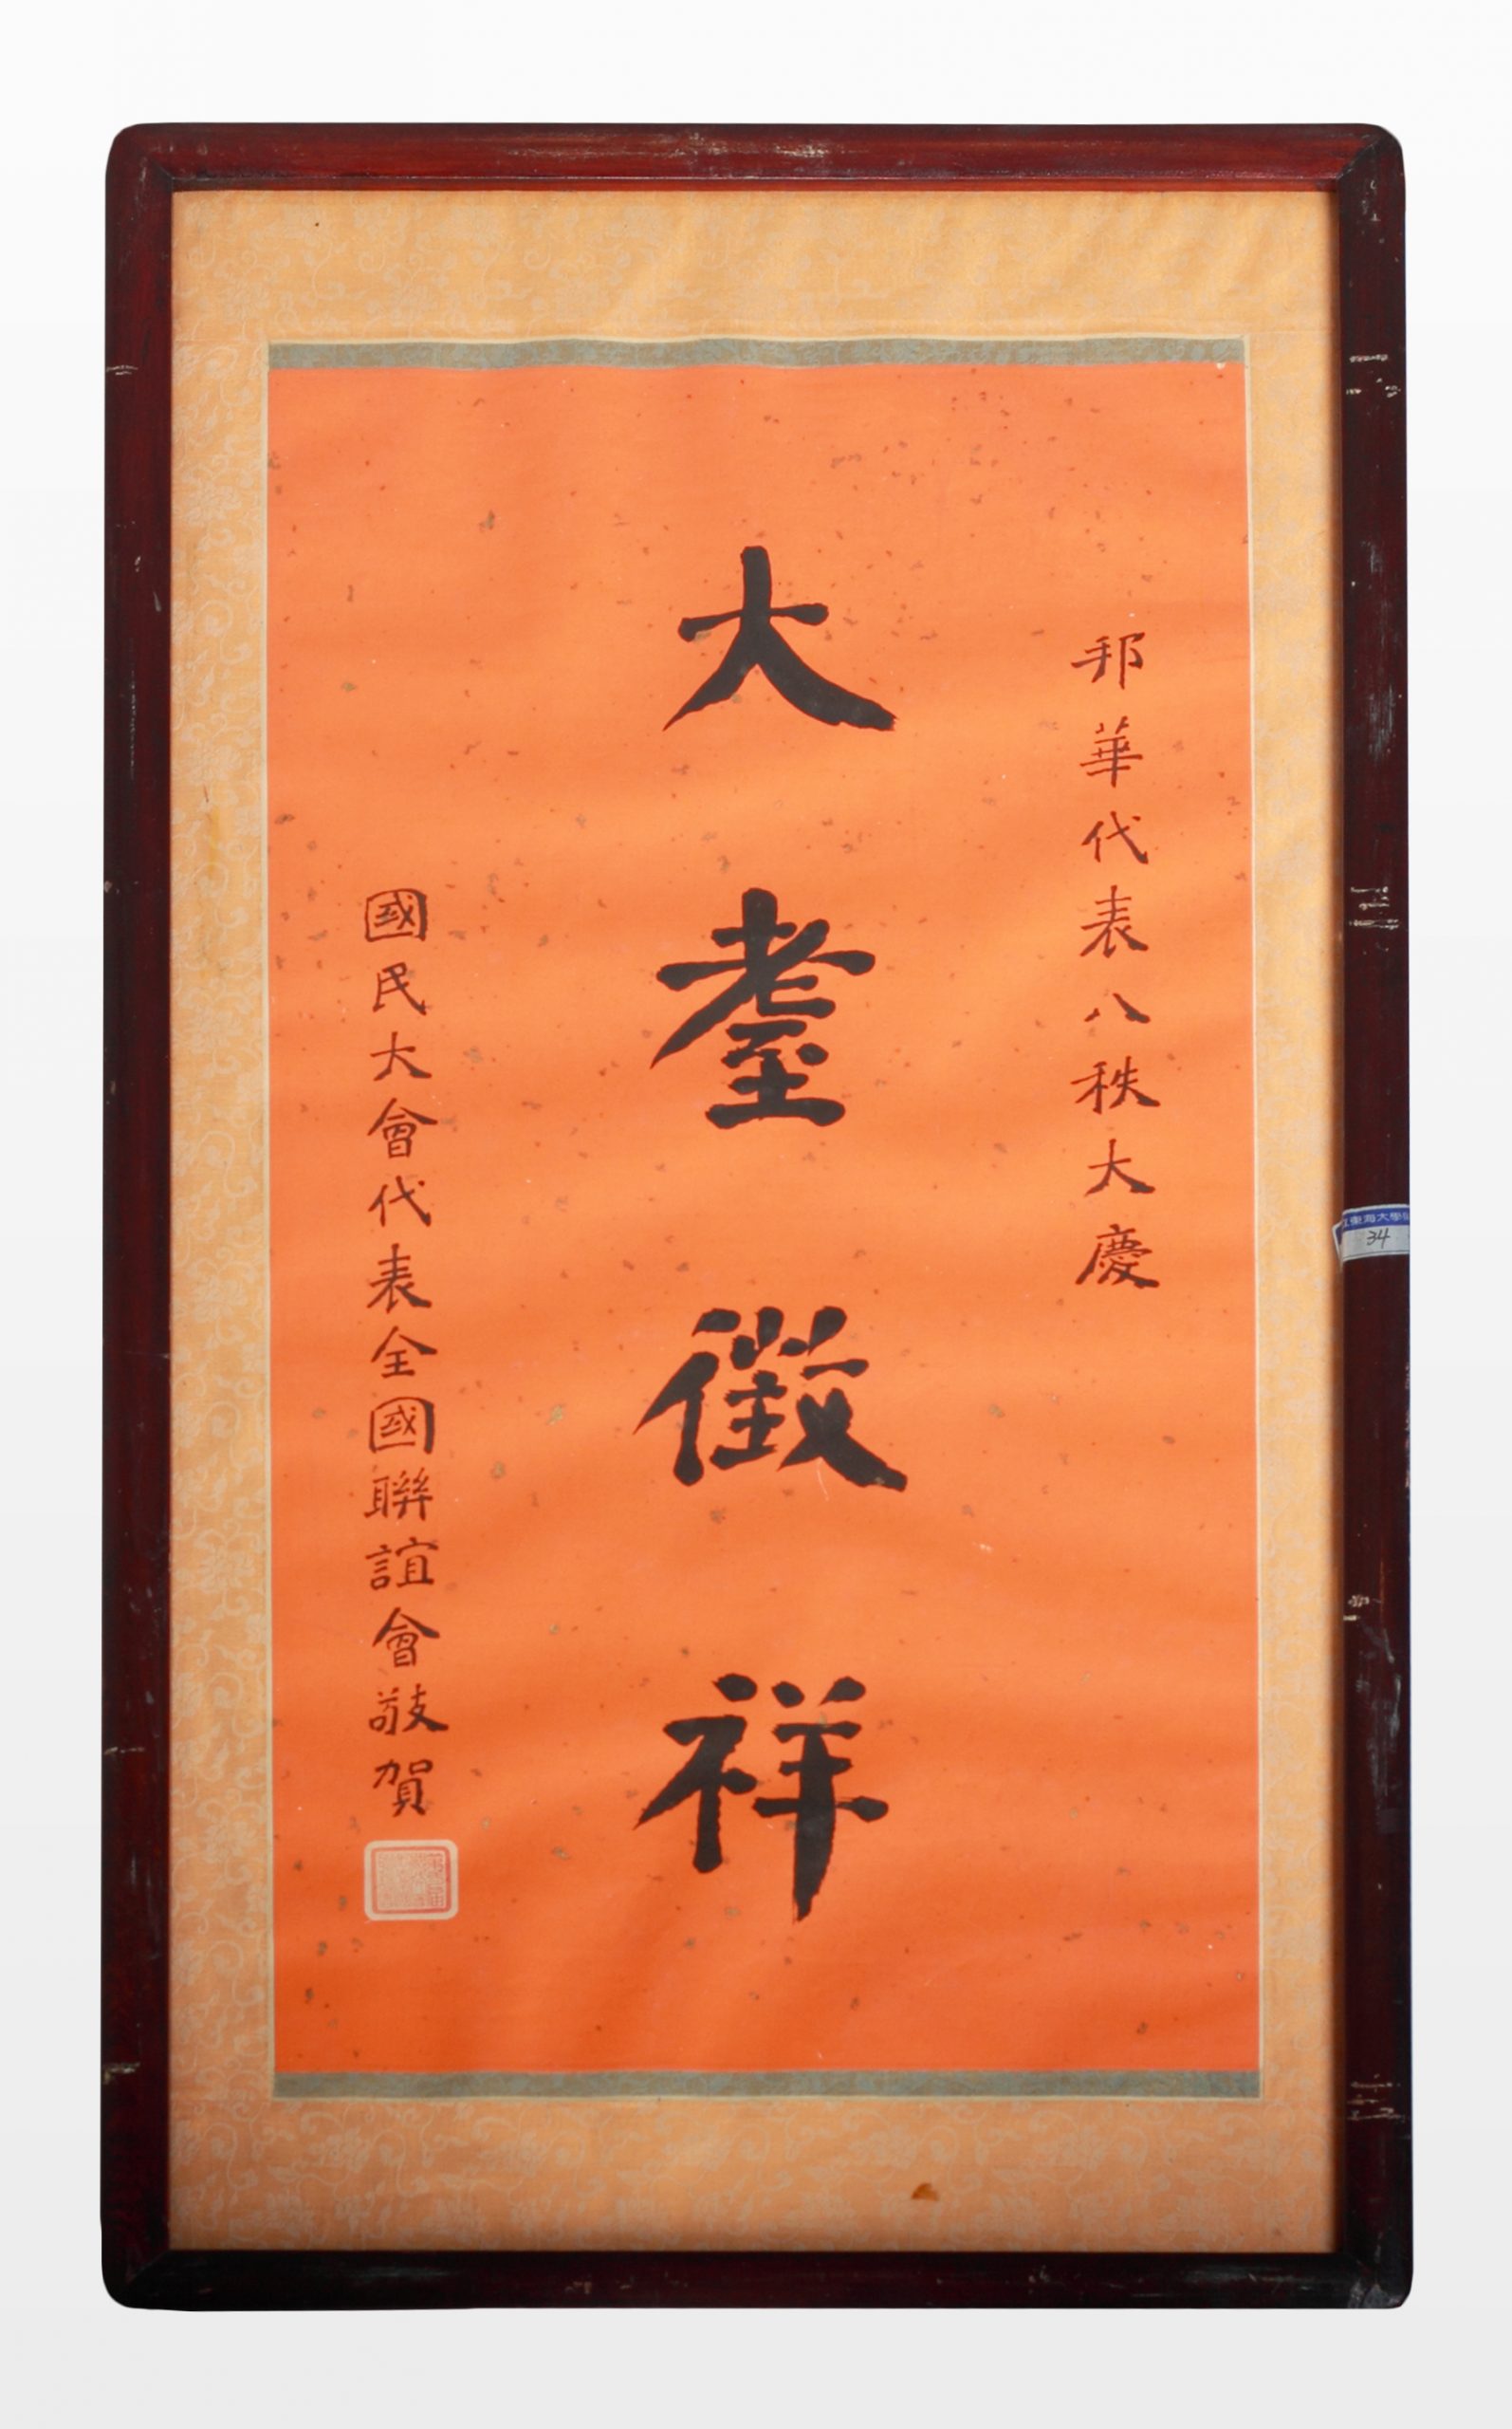 邦華代表八秩大慶
大耋徵祥
國民大會代表全國聯誼會敬賀
東海大學
34